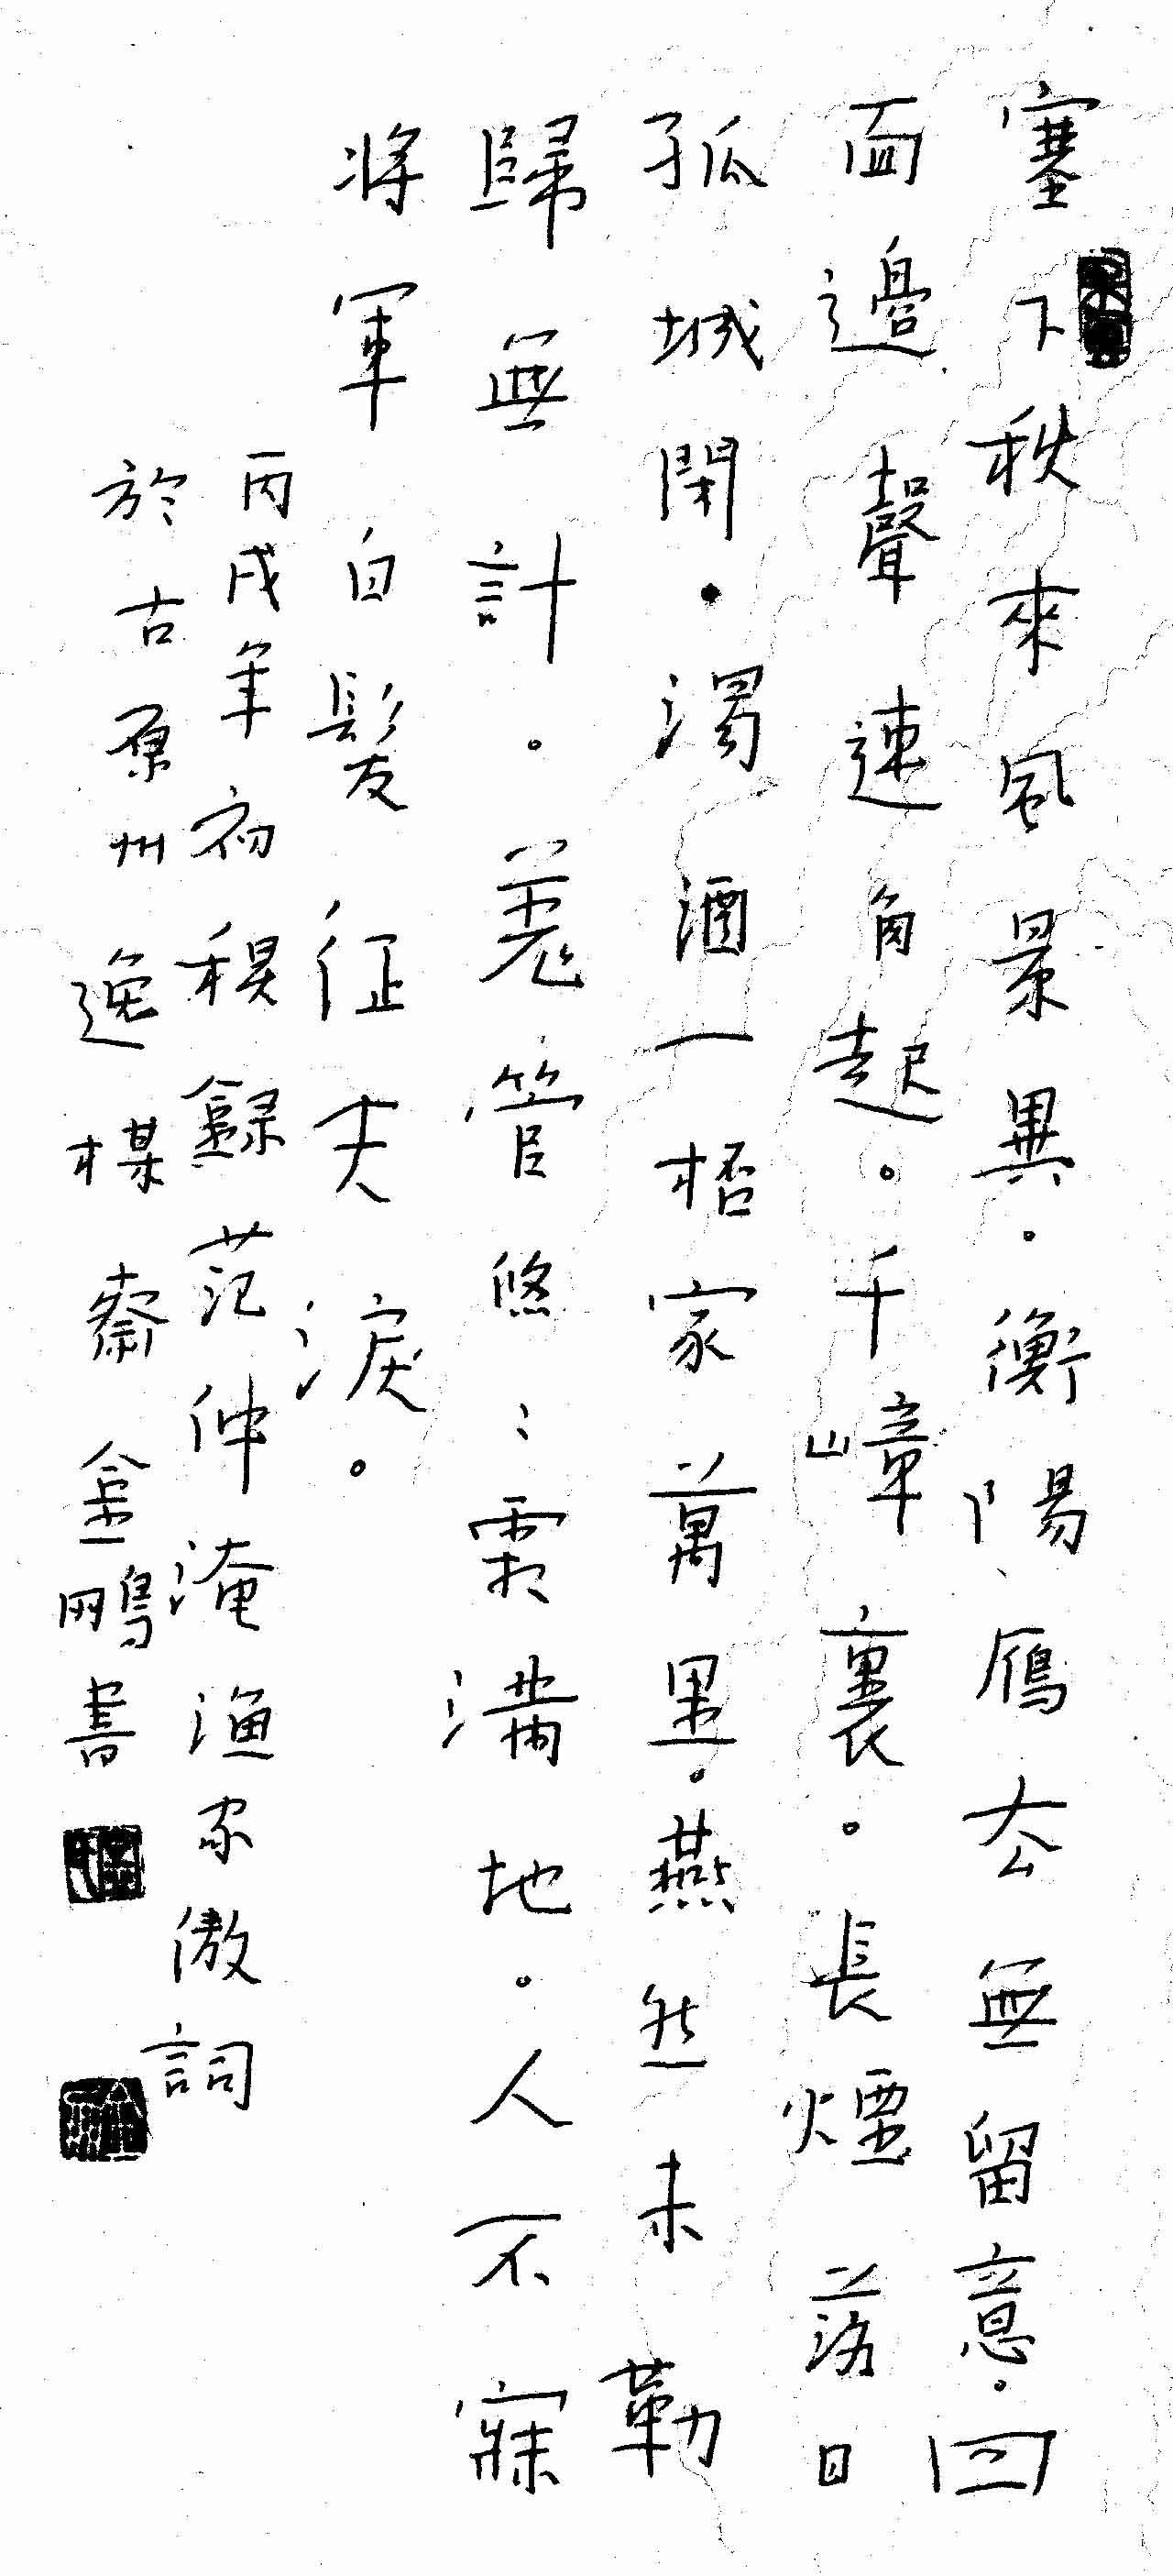 塞下秋來風景異。衡陽雁去無留意。四
面邊聲連角起。千嶂裏。長煙落日
孤城閉。濁酒一桮家萬里。燕然未勒
歸無計。羌管悠〻霜滿地。人不寐
將軍白髮征夫淚。
丙戌年初稘錄范仲淹漁家傲詞
於古原州逸楳齋金鵬書